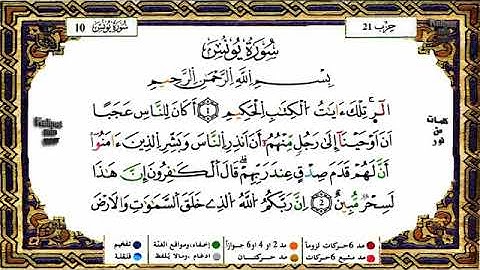 حِزْب 21
سُورَةُ يُونُسَ 10
سُورَةُ يُونُسَ
بِسْمِ اللَّهِ الرَّحْمَٰنِ الرَّحِيمِ
الٓر تِلْكَ ءَايَٰتُ الْكِتَٰبِ الْحَكِيمِ 1 أَكَانَ لِلنَّاسِ عَجَبًا
اَنَ اَوْحَيْنَا إِلَىٰ رَجُلٍ مِّنْهُمُ أَنَ اَنذِرِ النَّاسَ وَبَشِّرِ الَّذِينَ ءَامَنُوا
أَنَّ لَهُمْ قَدَمَ صِدْقٍ عِندَ رَبِّهِمْ قَالَ الْكَٰفِرُونَ إِنَّ هَٰذَا
لَسِحْرٌ مُّبِينٌ 2 اِنَّ رَبَّكُمُ اللَّهُ الَّذِي خَلَقَ السَّمَٰوَٰتِ وَالْأَرْضَ
كلمات
من
نور
مد 6 حركات لزوماً مد 2 او 4 او 6 جوازاً إخفاء، ومواقع الغنة تفخيم
مد مشبع 6 حركات مد حركتان ادغام، ومالا يُلفظ قلقلة